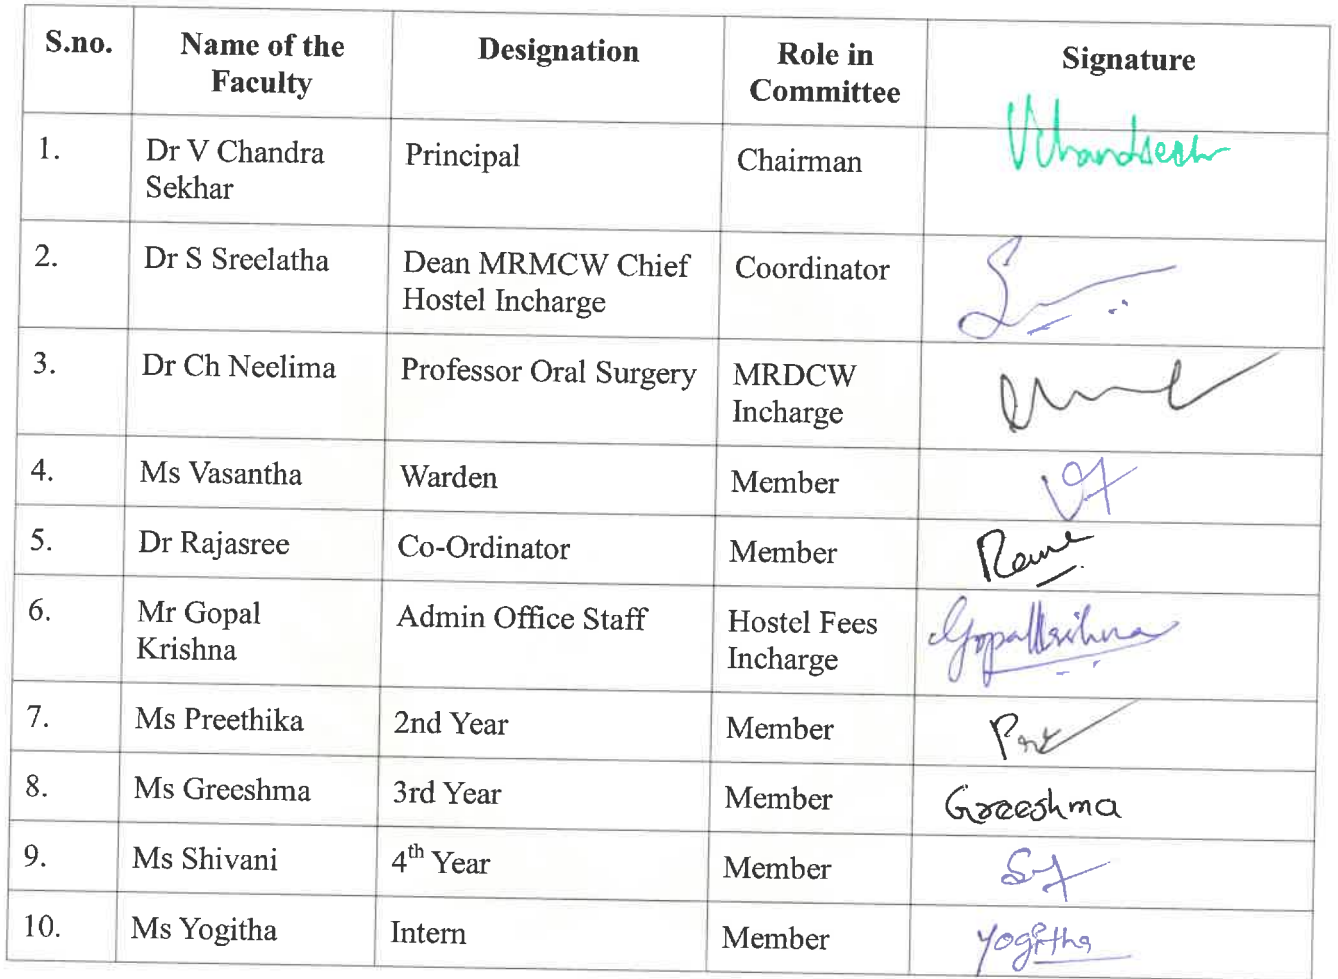 S.no. Name of the Faculty Designation Role in Committee Signature
1. Dr V Chandra Sekhar Principal Chairman
2. Dr S Sreelatha Dean MRMCW Chief Hostel Incharge Coordinator
3. Dr Ch Neelima Professor Oral Surgery MRDCW Incharge
4. Ms Vasantha Warden Member
5. Dr Rajasree Co-Ordinator Member
6. Mr Gopal Krishna Admin Office Staff Hostel Fees Incharge GopalKrishna
7. Ms Preethika 2nd Year Member
8. Ms Greeshma 3rd Year Member Greeshma
9. Ms Shivani 4th Year Member
10. Ms Yogitha Intern Member Yogitha